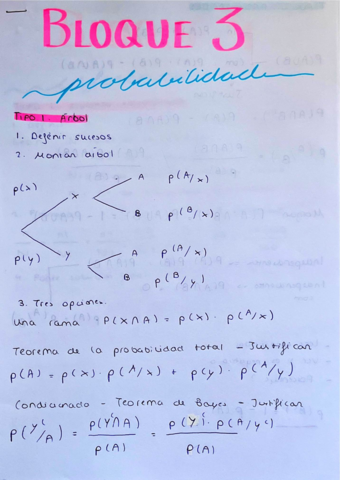 BLOQUE 3
probabilidad
Tipo 1. Árbol
1. Definir sucesos
2. Montar árbol
p(x)
x
A
p(A/x)
B
p(B/x)
p(y)
y
A
p(A/x)
B
p(B/y)
3. Tres opciones.
una rama → P(X∩A) = p(x) · p(A/x)
Teorema de la probabilidad total - Justificar
p(A) = p(x) · p(A/x) + p(y) · p(A/y)
Condicionado - Teorema de Bayes - Justificar
p(Yᶜ/A) = p(Yᶜ∩A)/p(A) = p(Yᶜ) · p(A/yᶜ)/p(A)